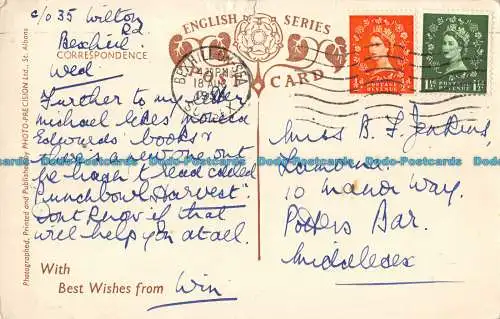 c/o 35 Wilton
Rd
Bexhill
CORRESPONDENCE
Wed
Further to my letter
Michael likes
Edwards' books
there
he hasn't read called
"Punchbowl Harvest"
Dont know if that
will help you at all.
With
Best Wishes from Win
ENGLISH SERIES
CARD
BEXHILL-ON-SEA
POSTAGE
REVENUE
1½D POSTAGE 1½D
REVENUE
Miss B. F. Jenkins,
Lamorna
10 Manor Way.
Potters Bar.
Middlesex
Photographed, Printed and Published by PHOTO-PRECISION Ltd., St. Albans
Dodo-Postcards Dodo-Postcards Dodo-Postcards Dodo-Postcards